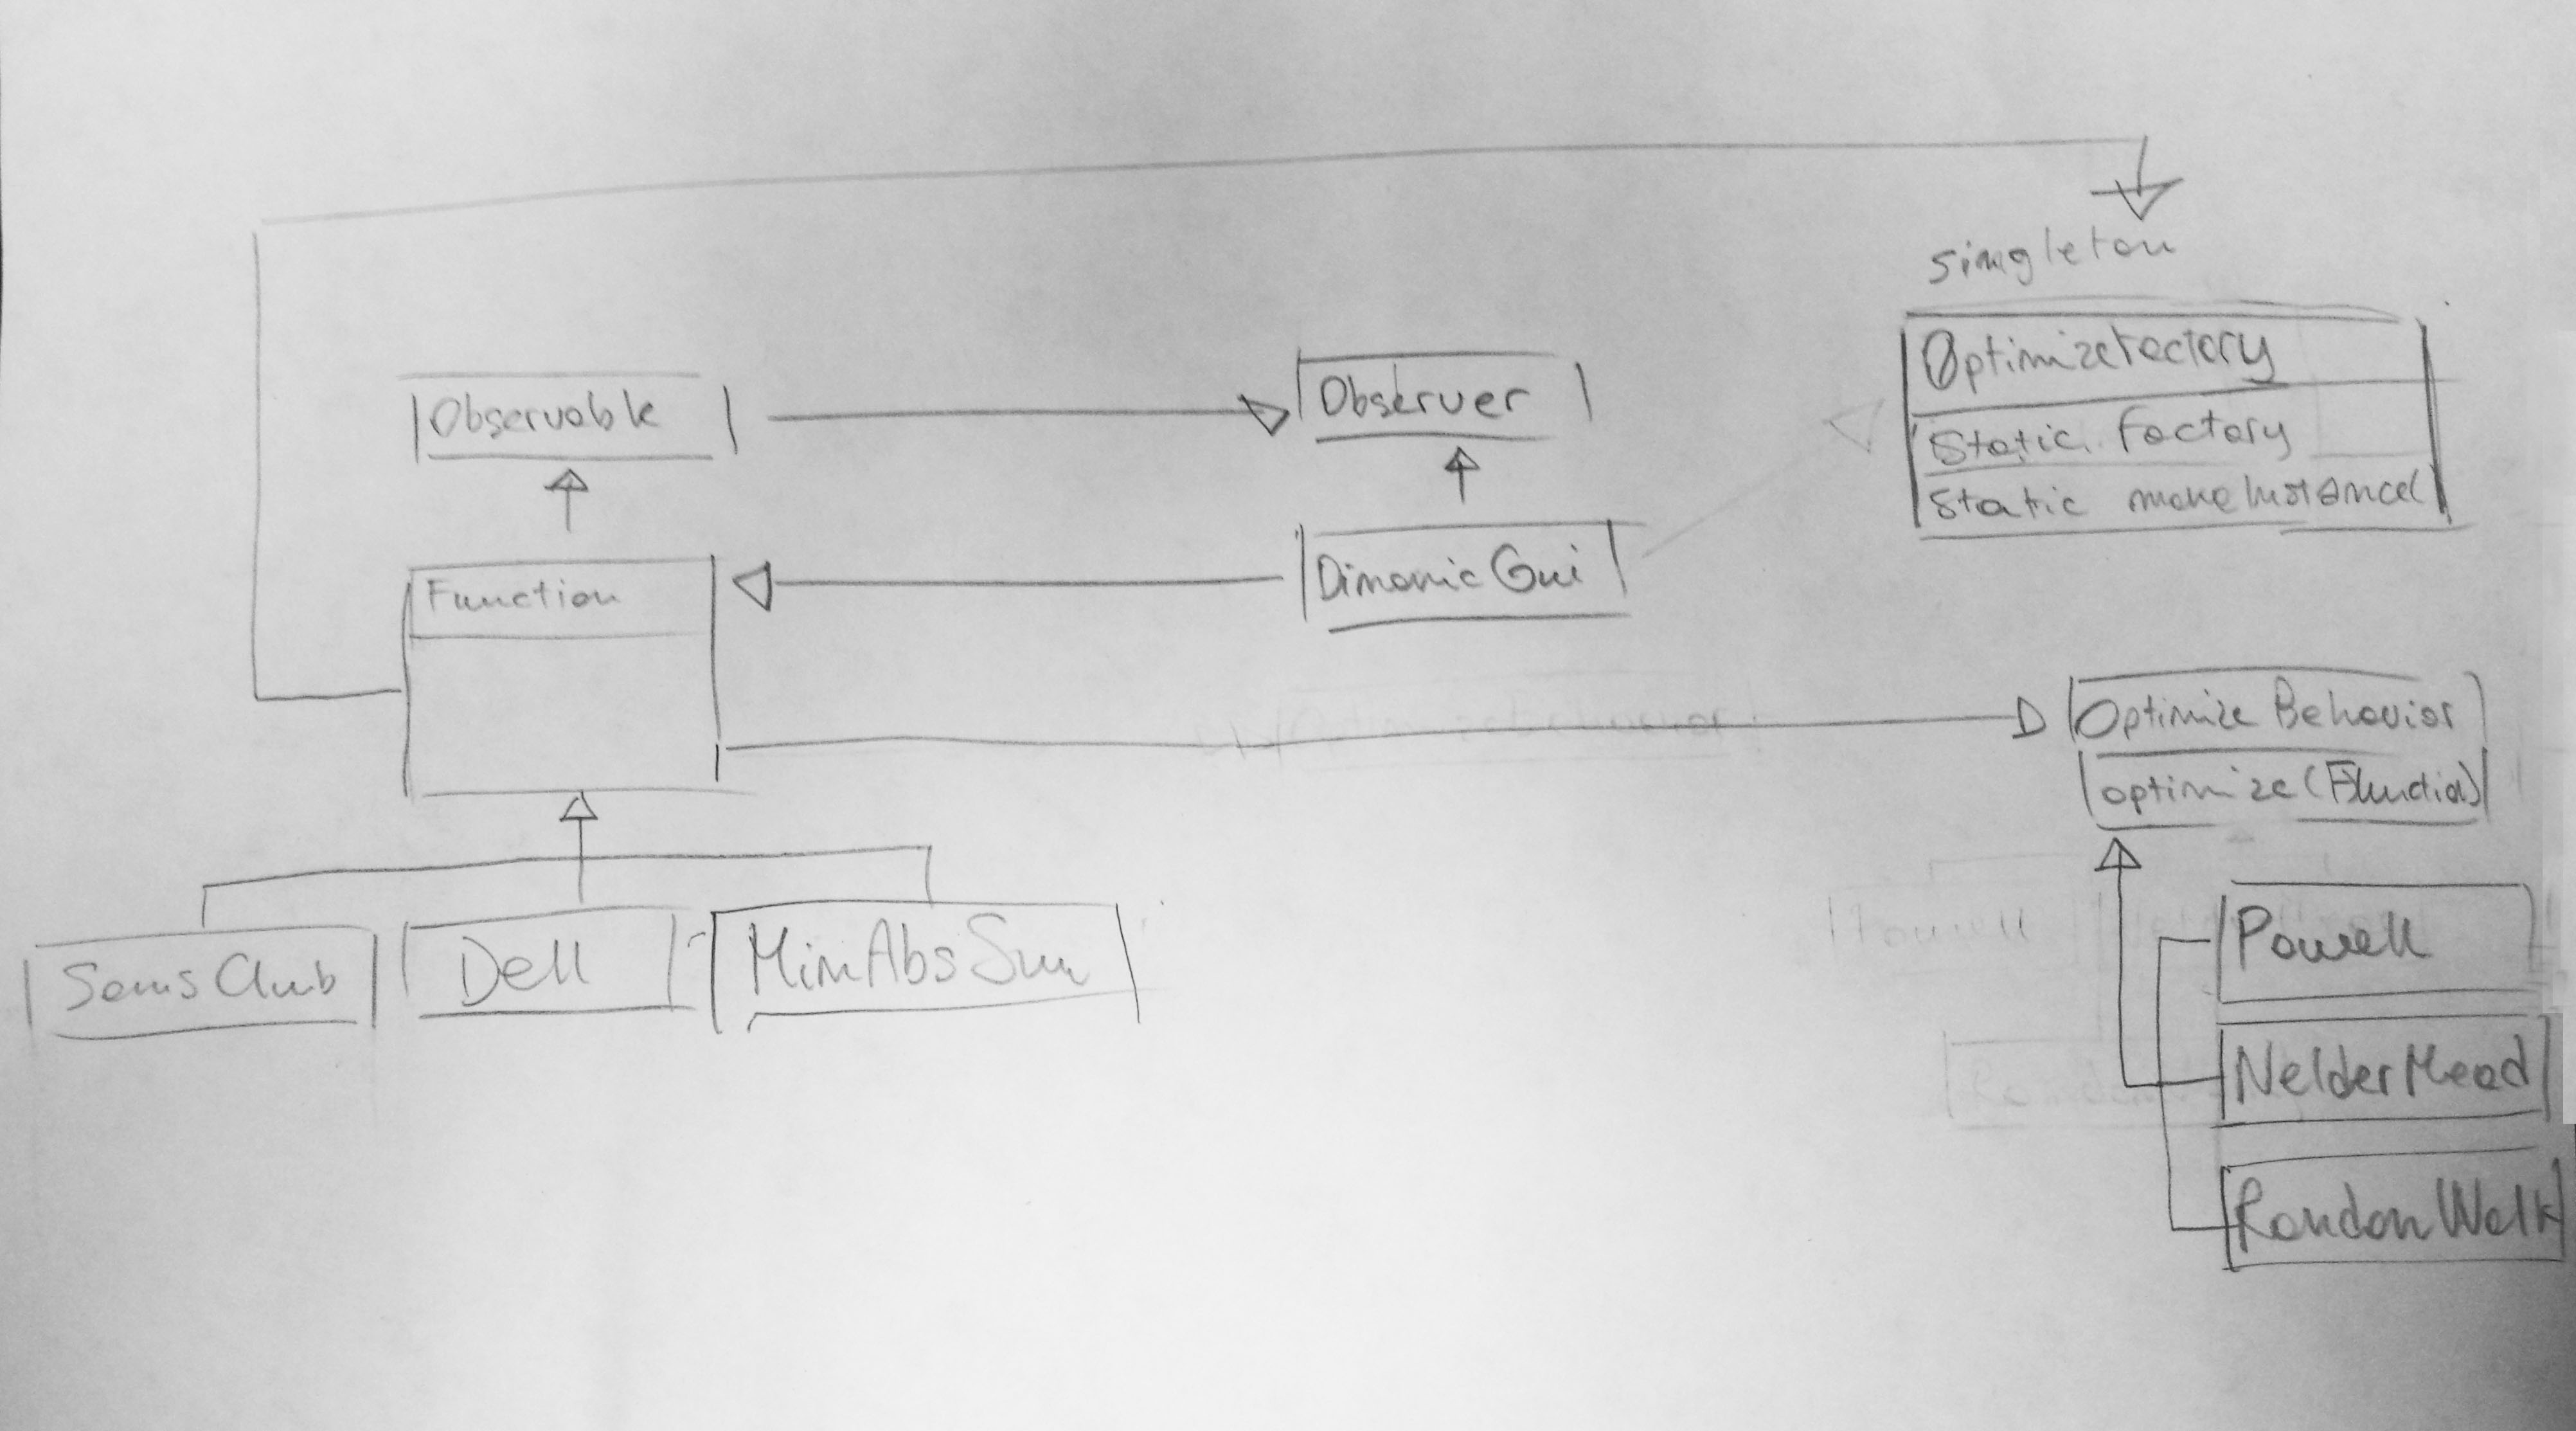 singleton
Optimizefactory
Static factory
Static makeInstance(
Observable
Observer
Function
DimanicGui
Optimize Behavior
optimize(Function)
SamsClub
Dell
MinAbsSum
Powell
NelderMead
RandonWalk
Powell